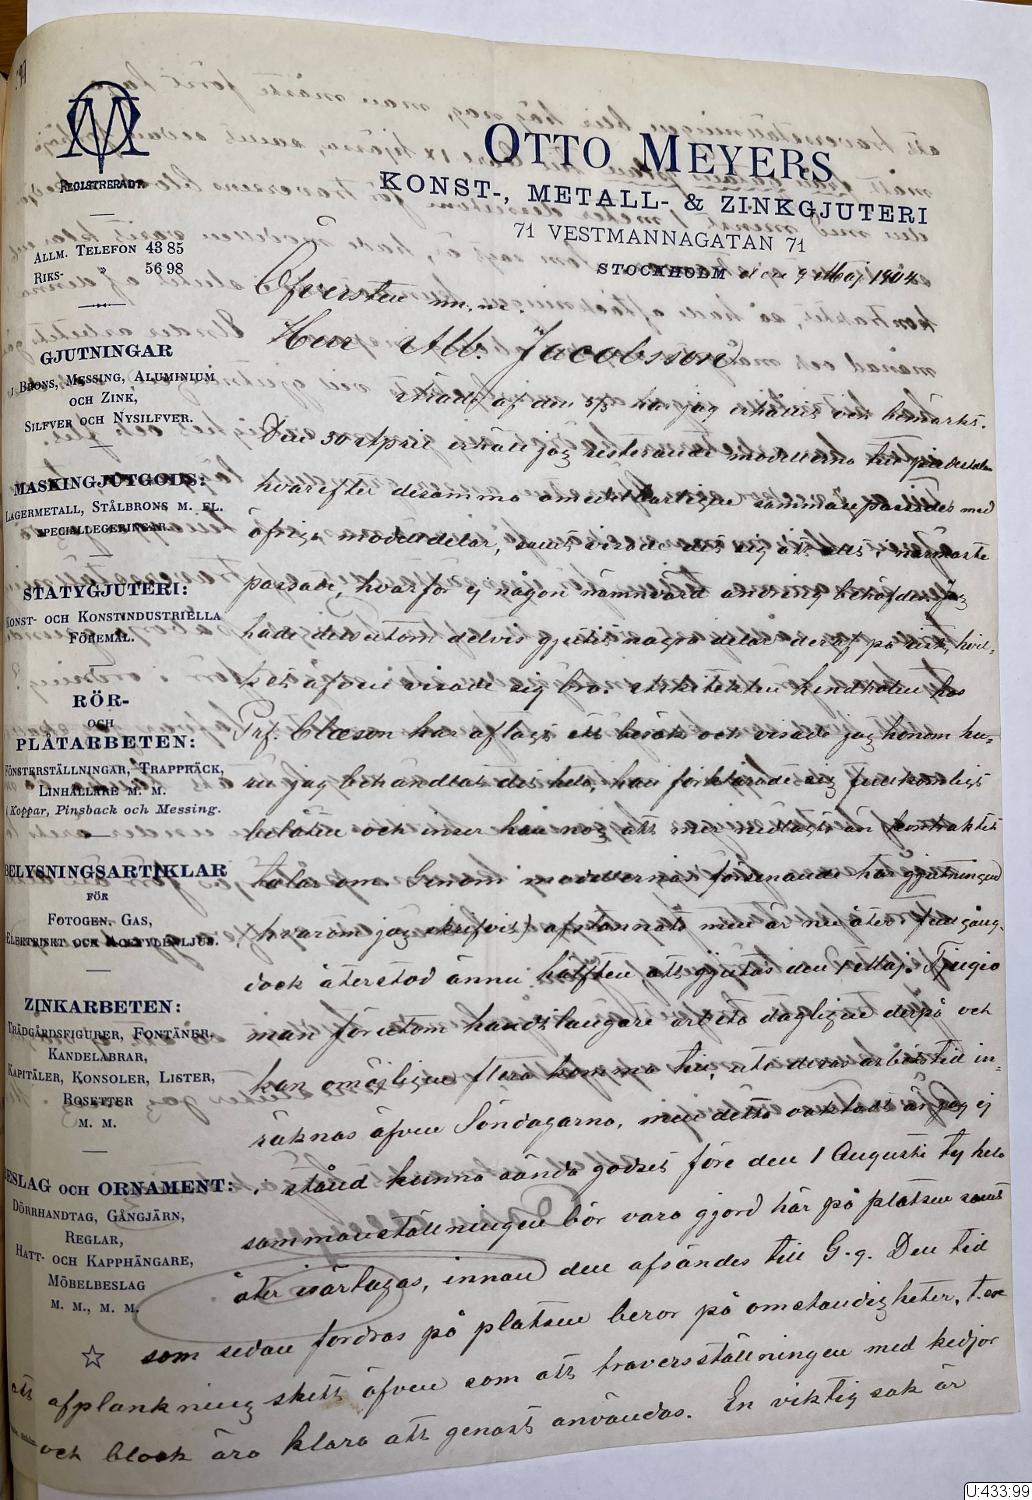 OM
REGISTRERADT.
ALLM. TELEFON 43 85
RIKS- » 56 98
OTTO MEYERS
KONST-, METALL- & ZINKGJUTERI
71 VESTMANNAGATAN 71
STOCKHOLM den 9 Maj 1904
GJUTNINGAR
I BRONS, MESSING, ALUMINIUM
OCH ZINK,
SILFVER OCH NYSILFVER.
MASKINGJUTGODS:
LAGERMETALL, STÅLBRONS M. FL.
SPECIALLEGERINGAR.
STATYGJUTERI:
KONST- OCH KONSTINDUSTRIELLA
FÖREMÅL.
RÖR-
OCH
PLÅTARBETEN:
FÖNSTERSTÄLLNINGAR, TRAPPRÄCK,
LINHÅLLARE M. M.
i Koppar, Pinsback och Messing.
BELYSNINGSARTIKLAR
FÖR
FOTOGEN, GAS,
ELEKTRISKT OCH ACETYLENLJUS.
ZINKARBETEN:
TRÄDGÅRDSFIGURER, FONTÄNER,
KANDELABRAR,
KAPITÄLER, KONSOLER, LISTER,
ROSETTER
M. M.
BESLAG OCH ORNAMENT:
DÖRRHANDTAG, GÅNGJÄRN,
REGLAR,
HATT- OCH KAPPHÄNGARE,
MÖBELBESLAG
M. M., M. M.
Öfversten m. m.
Herr Alb. Jacobsson
ärade af den 5/5 har jag erhållit och bemärkt.
Den 30 April erhöll jag resterande modellerna till piedestalen
hvarefter desamma omedelbarligen sammanpassades med
öfriga modelldelar, samt visade det sig att allt i närmaste
passade, hvarför ej någon nämnvärd ändring behöfdes. Jag
hade dessutom delvis gjutit några delar deraf på risk, hvil-
ket äfven visade sig bra. Arkitekten Lindholm hos
Prf. Clason har aflagt ett besök och visade jag honom hu-
ru jag behandlat det hela, han förklarade sig fullkomligt
belåten och inser han nog att mer nedlagts än kontraktet
talar om. Genom modellernas försenande har gjutningen
(hvarom jag skrifvit) afstannat men är nu åter i full gång.
dock återstod ännu hälften att gjutas den 1 Maj. Tjugio
man förutom handtlangare arbeta dagligen derpå och
kan omöjligen flera komma till, uti deras arbetstid in-
räknas äfven Söndagarna, men detta oaktadt är jag ej
i stånd kunna sända godset före den 1 Augusti ty hela
sammanställningen bör vara gjord här på platsen samt
åter isärtagas, innan den afsändes till G-g. Den tid
som sedan fordras på platsen beror på omständigheter, t. ex
att afplankning skett äfven som att traversställningen med kedjor
och block äro klara att genast användas. En viktig sak är
U:433:99